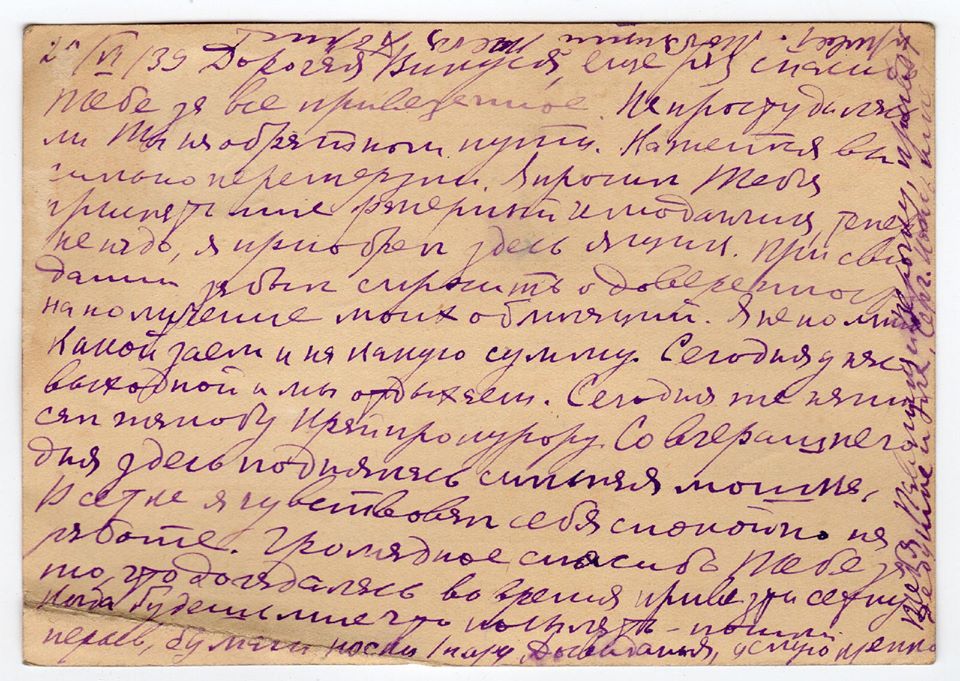 /VI/39 Дорогая Винуся, еще раз спасибо
Тебе за все привезенное. Не простудилась
ли Ты на обратном пути. Кажется вы
сильно перемерзли. Я просил Тебя
прислать мне фанерный чемоданчик, теперь
не надо, я приобрел здесь ящик. При сви
дании забыл спросить о доверенности
на получение моих облигаций. Я не помню
какой заем и на какую сумму. Сегодня у нас
выходной и мы отдыхаем. Сегодня же напи
сал жалобу Крайпрокурору. Со вчерашнего
дня здесь поднялась сильная мошка,
В сетке я чувствовал себя спокойно на
работе. Громадное спасибо Тебе за
то, что догадалась во время привезти сетку
Когда будешь мне что посылать - пошли
перьев, бумаги, носки 1 пару. До свидания, целую крепко
Тебя